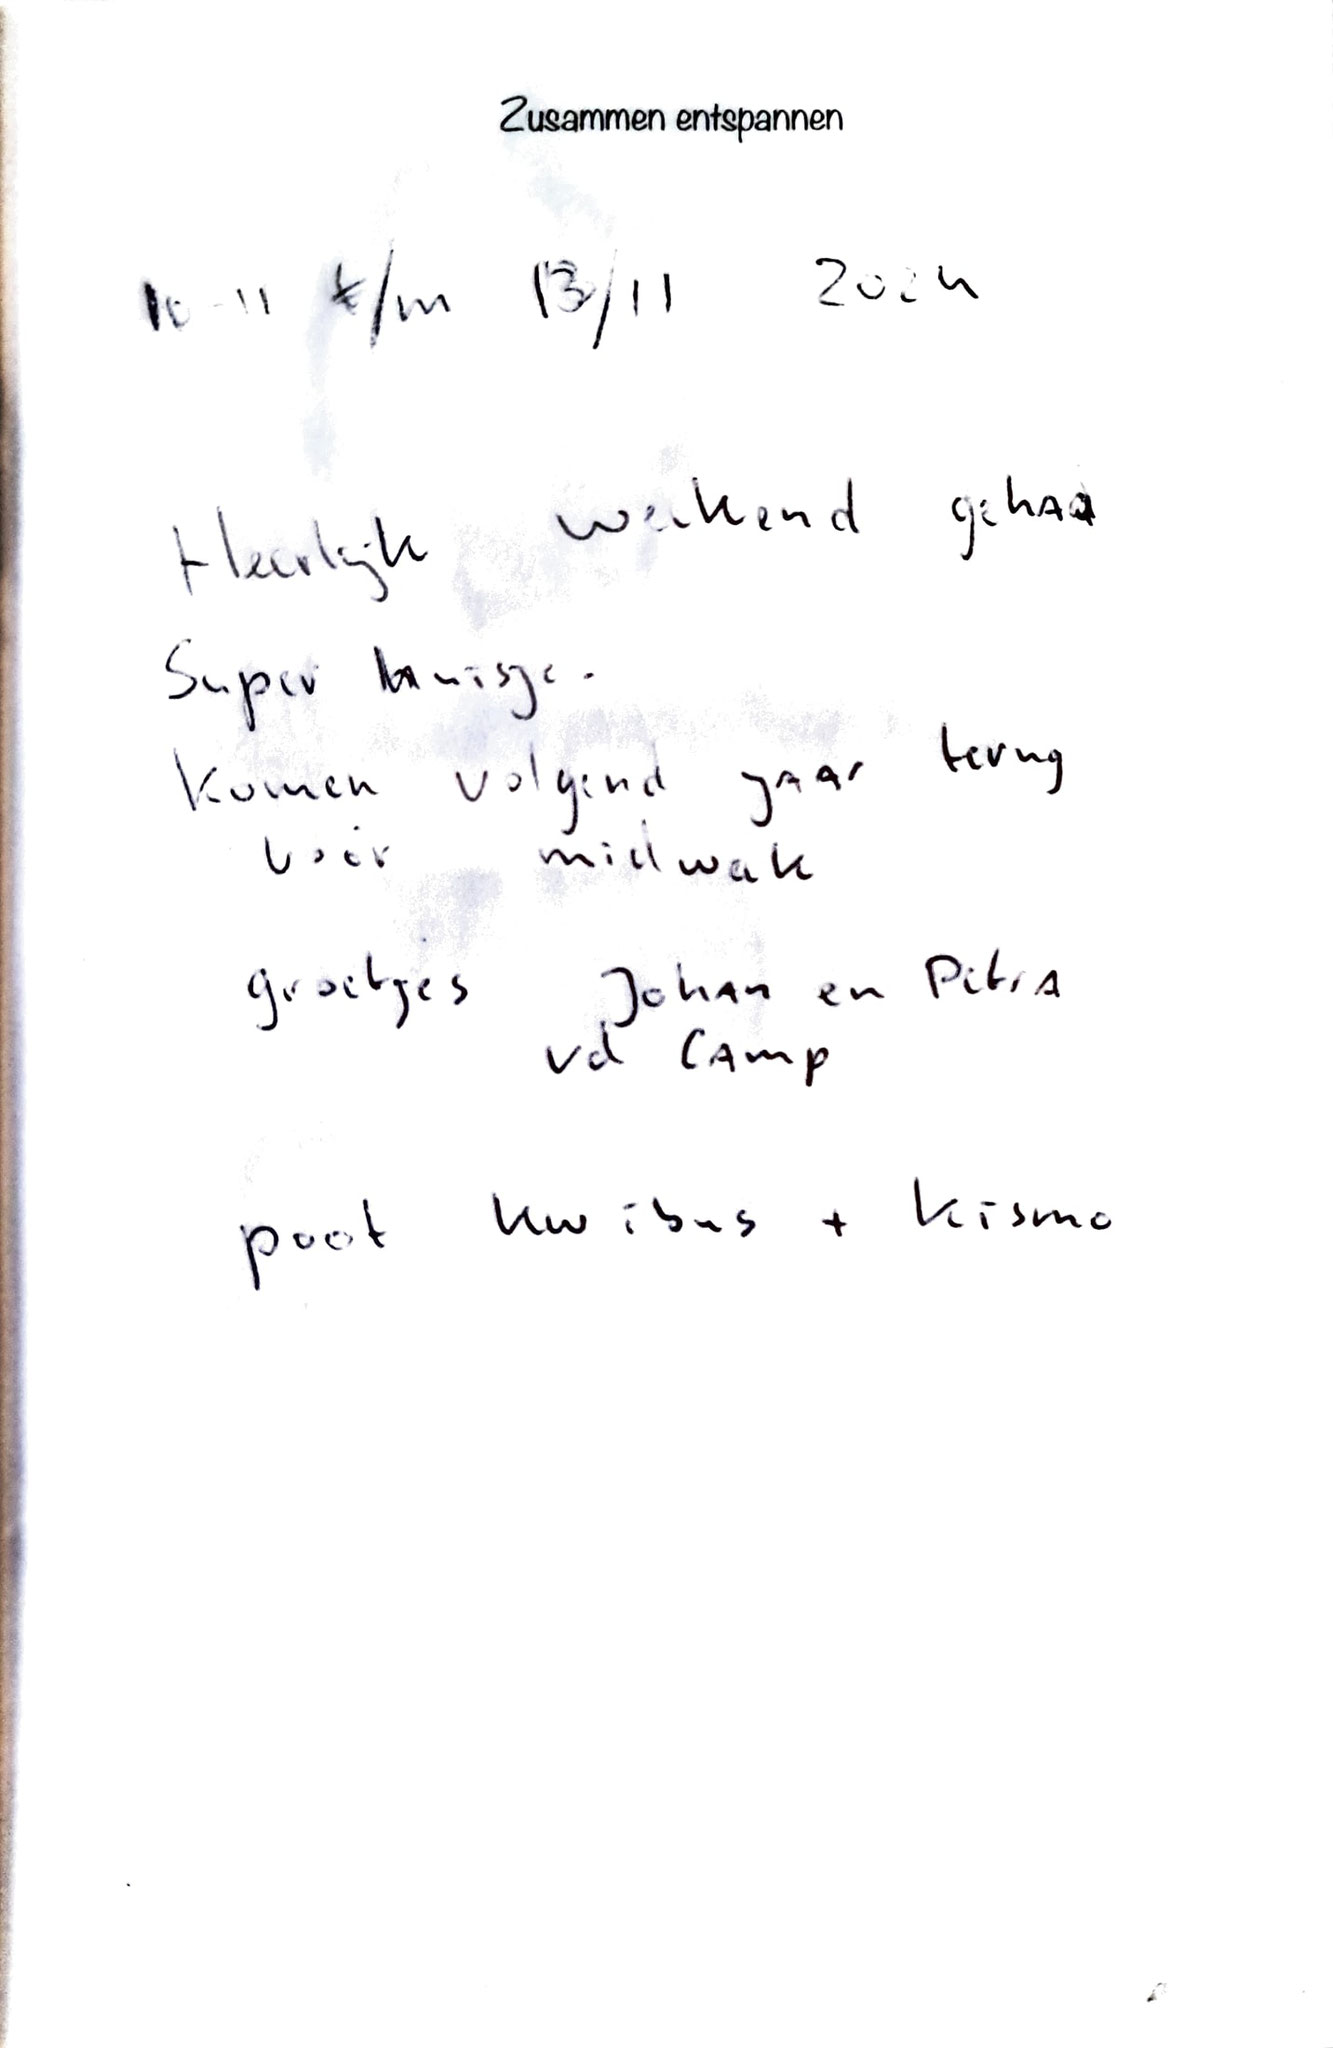 Zusammen entspannen
10-11 t/m 13/11 2024
Heerlijk weekend gehad
Super huisje.
Komen volgend jaar terug
voor midweek
groetjes Johan en Petra
vd Camp
poot Kwibus + Kismo